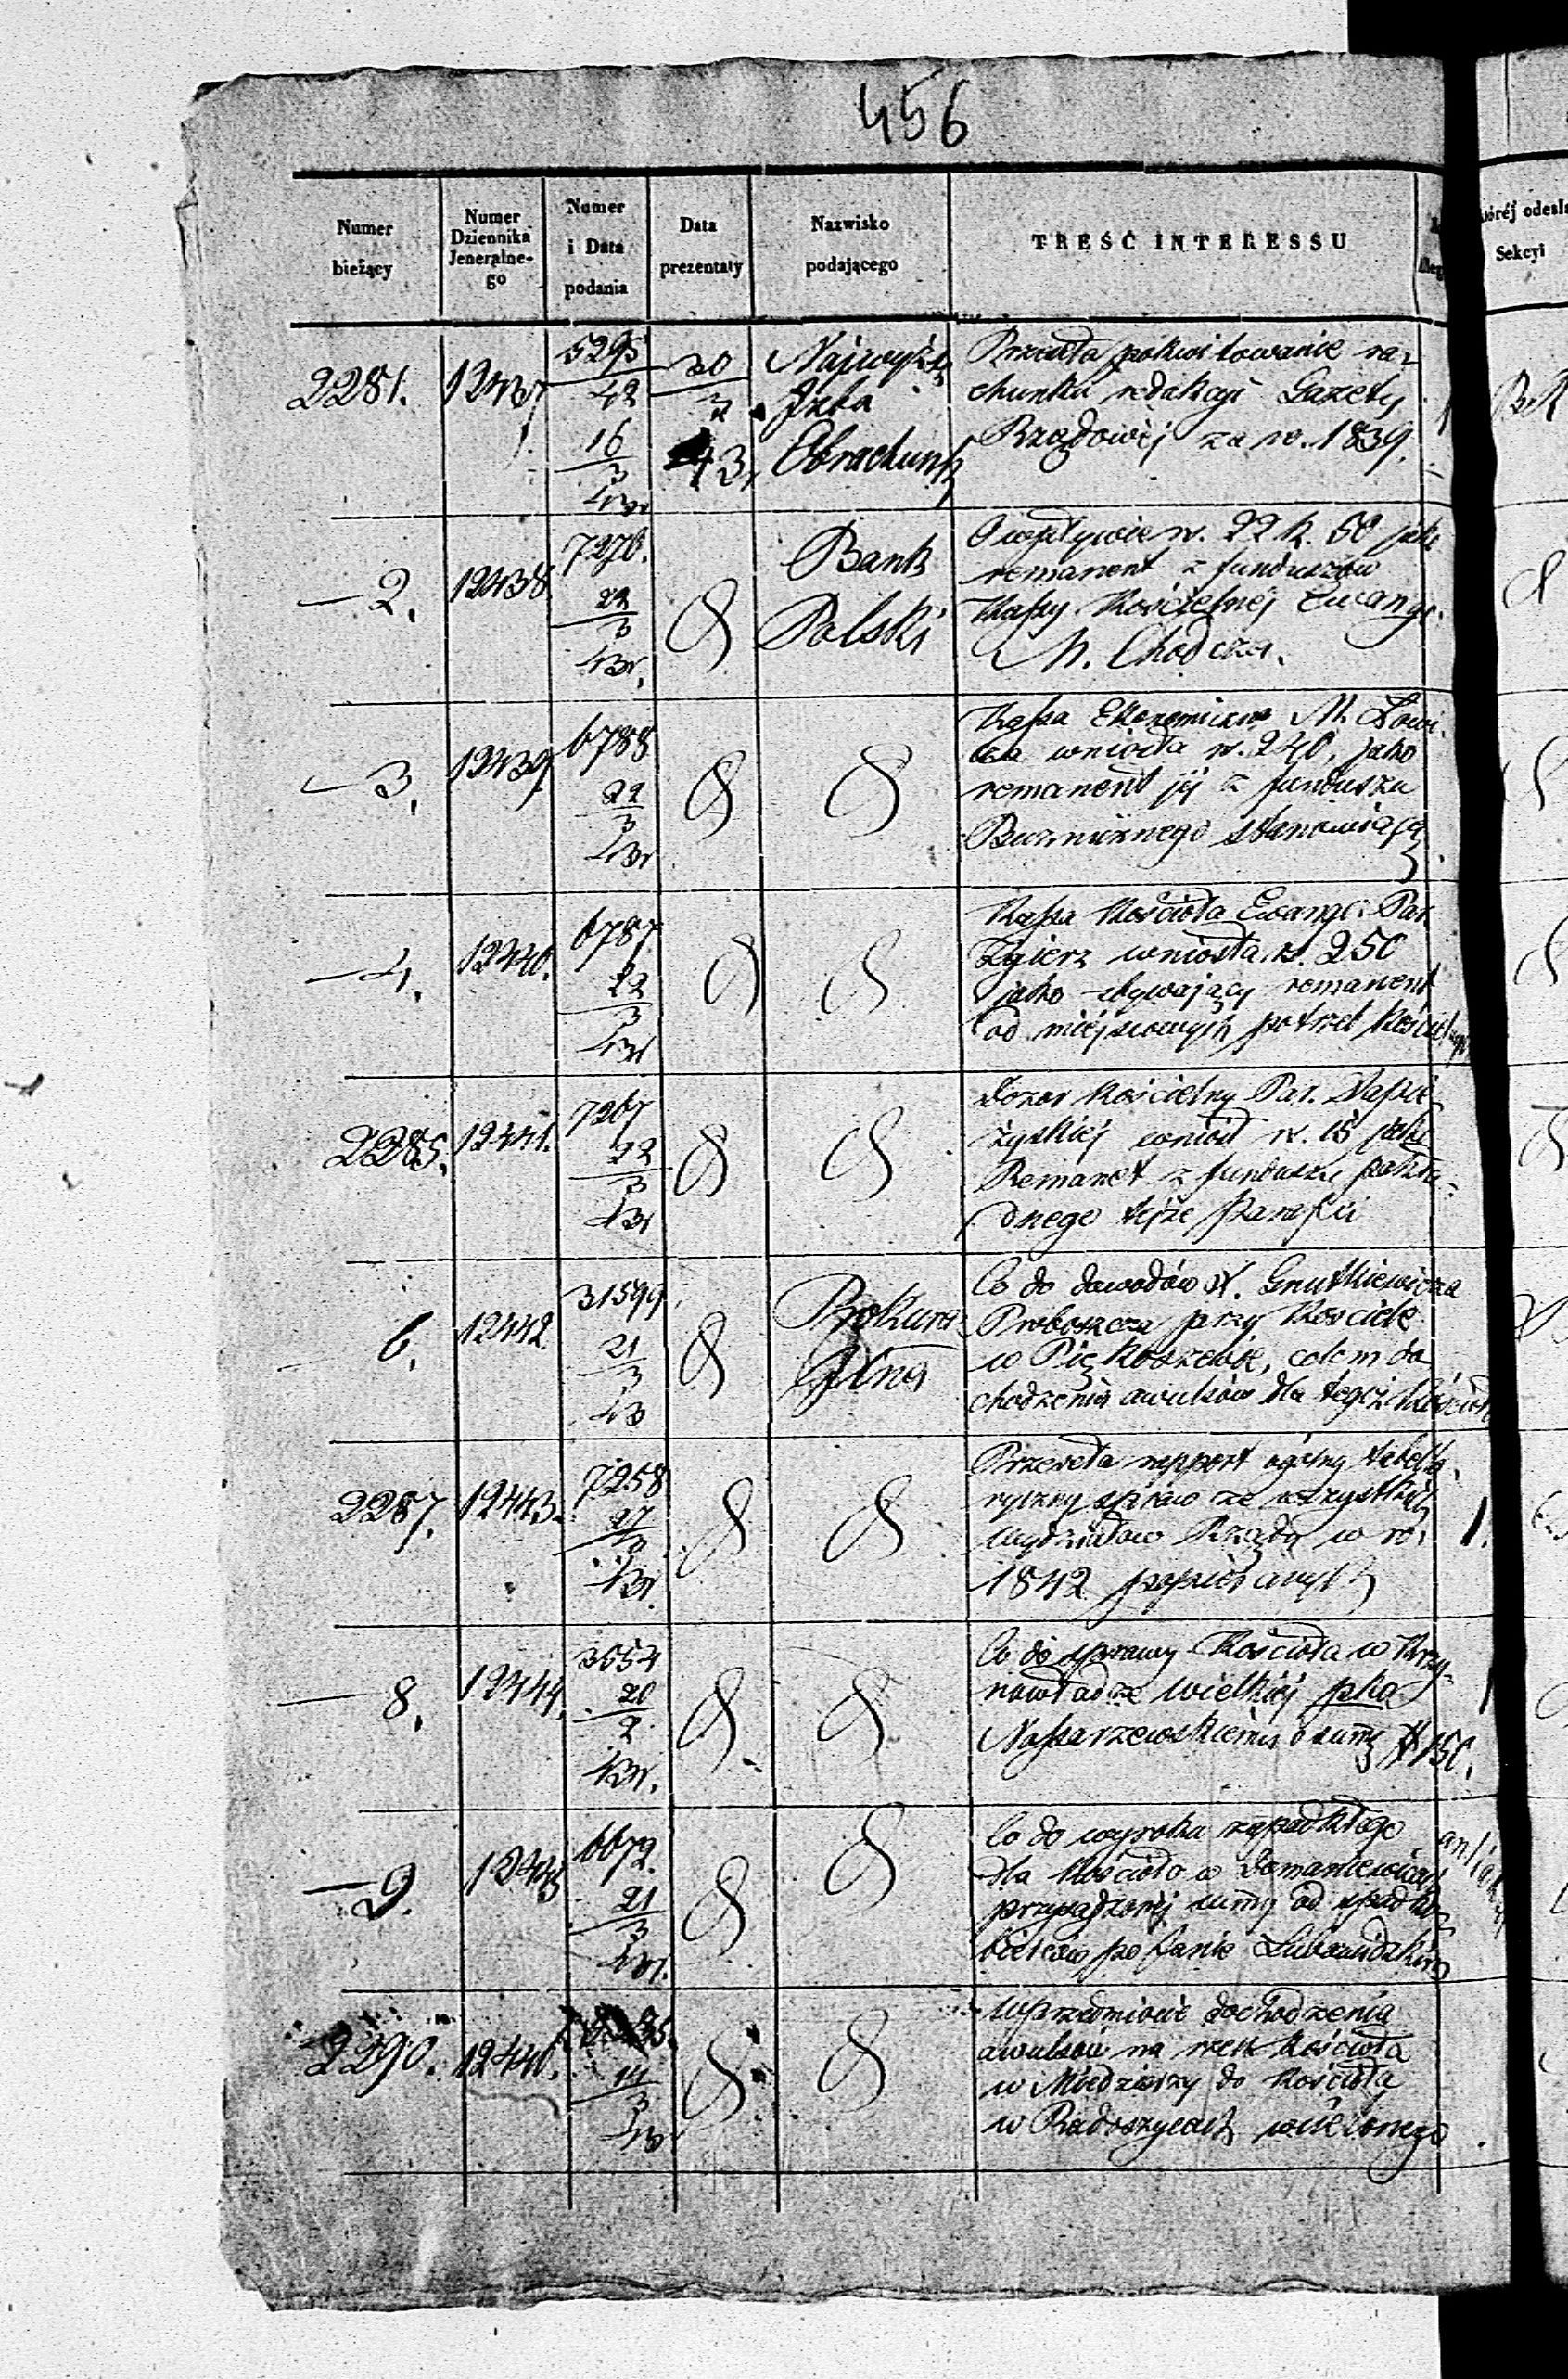 456
Numer bieżący
Numer Dziennika Jeneralne-go
Numer i Data podania
Data prezentaty
Nazwisko podającego
TREŚĆ INTERESSU
której odesła
Sekcyi
2281. 12437 5295/42 16/3 43 30/3 43 Najwyższa Izba Obrachunk
Przesyła pokwitowanie ra-
chunku redakcyi Gazety
Rządowéj za r. 1839.
— 2. 12438 7270. 22/3 43 Bank Polski
O wpływie r. 22 k. 50 jako
remanent z funduszów
Kassy Kościelnéj Ewang.
M. Chodcza.
— 3. 12439 6788 22/3 43
Kassa Ekonomiczna M. Łowi-
cza wniosła r. 240, jako
remanent jéj z funduszu
stanowiący
— 4. 12440. 6787 22/3 43
Kassa Kościoła Ewang: Par.
Zgierz wniosła r. 250
jako zbywający remanent
od miejscowych potrzeb Kościel
2285. 12441. 7267 22/3 43
Dozor Kościelny Par.
wniósł r. 15 jako
Remanet z funduszu pokła-
dnego tejże Parafii
6. 12442 31599 21/3 43 Prokura Jlna
Co do dowodów X. Gnutkiewicza
Proboszcza przy Kościele
w celem do
chodzenia awulsów dla tegoż Kościoła
2287. 12443. 7258 43
Przesyła rapport ogólny tabella-
ryczny spraw ze wszystkich
wydziałów Rządu w r.
1842 popieranych
1.
— 8. 12444. 3554 20/2 43
Co do sprawy Kościoła w Krzy-
nowłodze wielkiéj pko
Nassarzewskiemu o summę 150.
— 9. 12445 6672. 21/3 43
Co do wyroku zapadłego
dla Kościoła w Domaniewicach
przysądzonéj summy od spadko-
bierców po Janie
2290. 12446. 14/3 43
W przedmiocie dochodzenia
awulsów na rzecz Kościoła
w Miedzierzy do Kościoła
w Radoszycach wcielonego